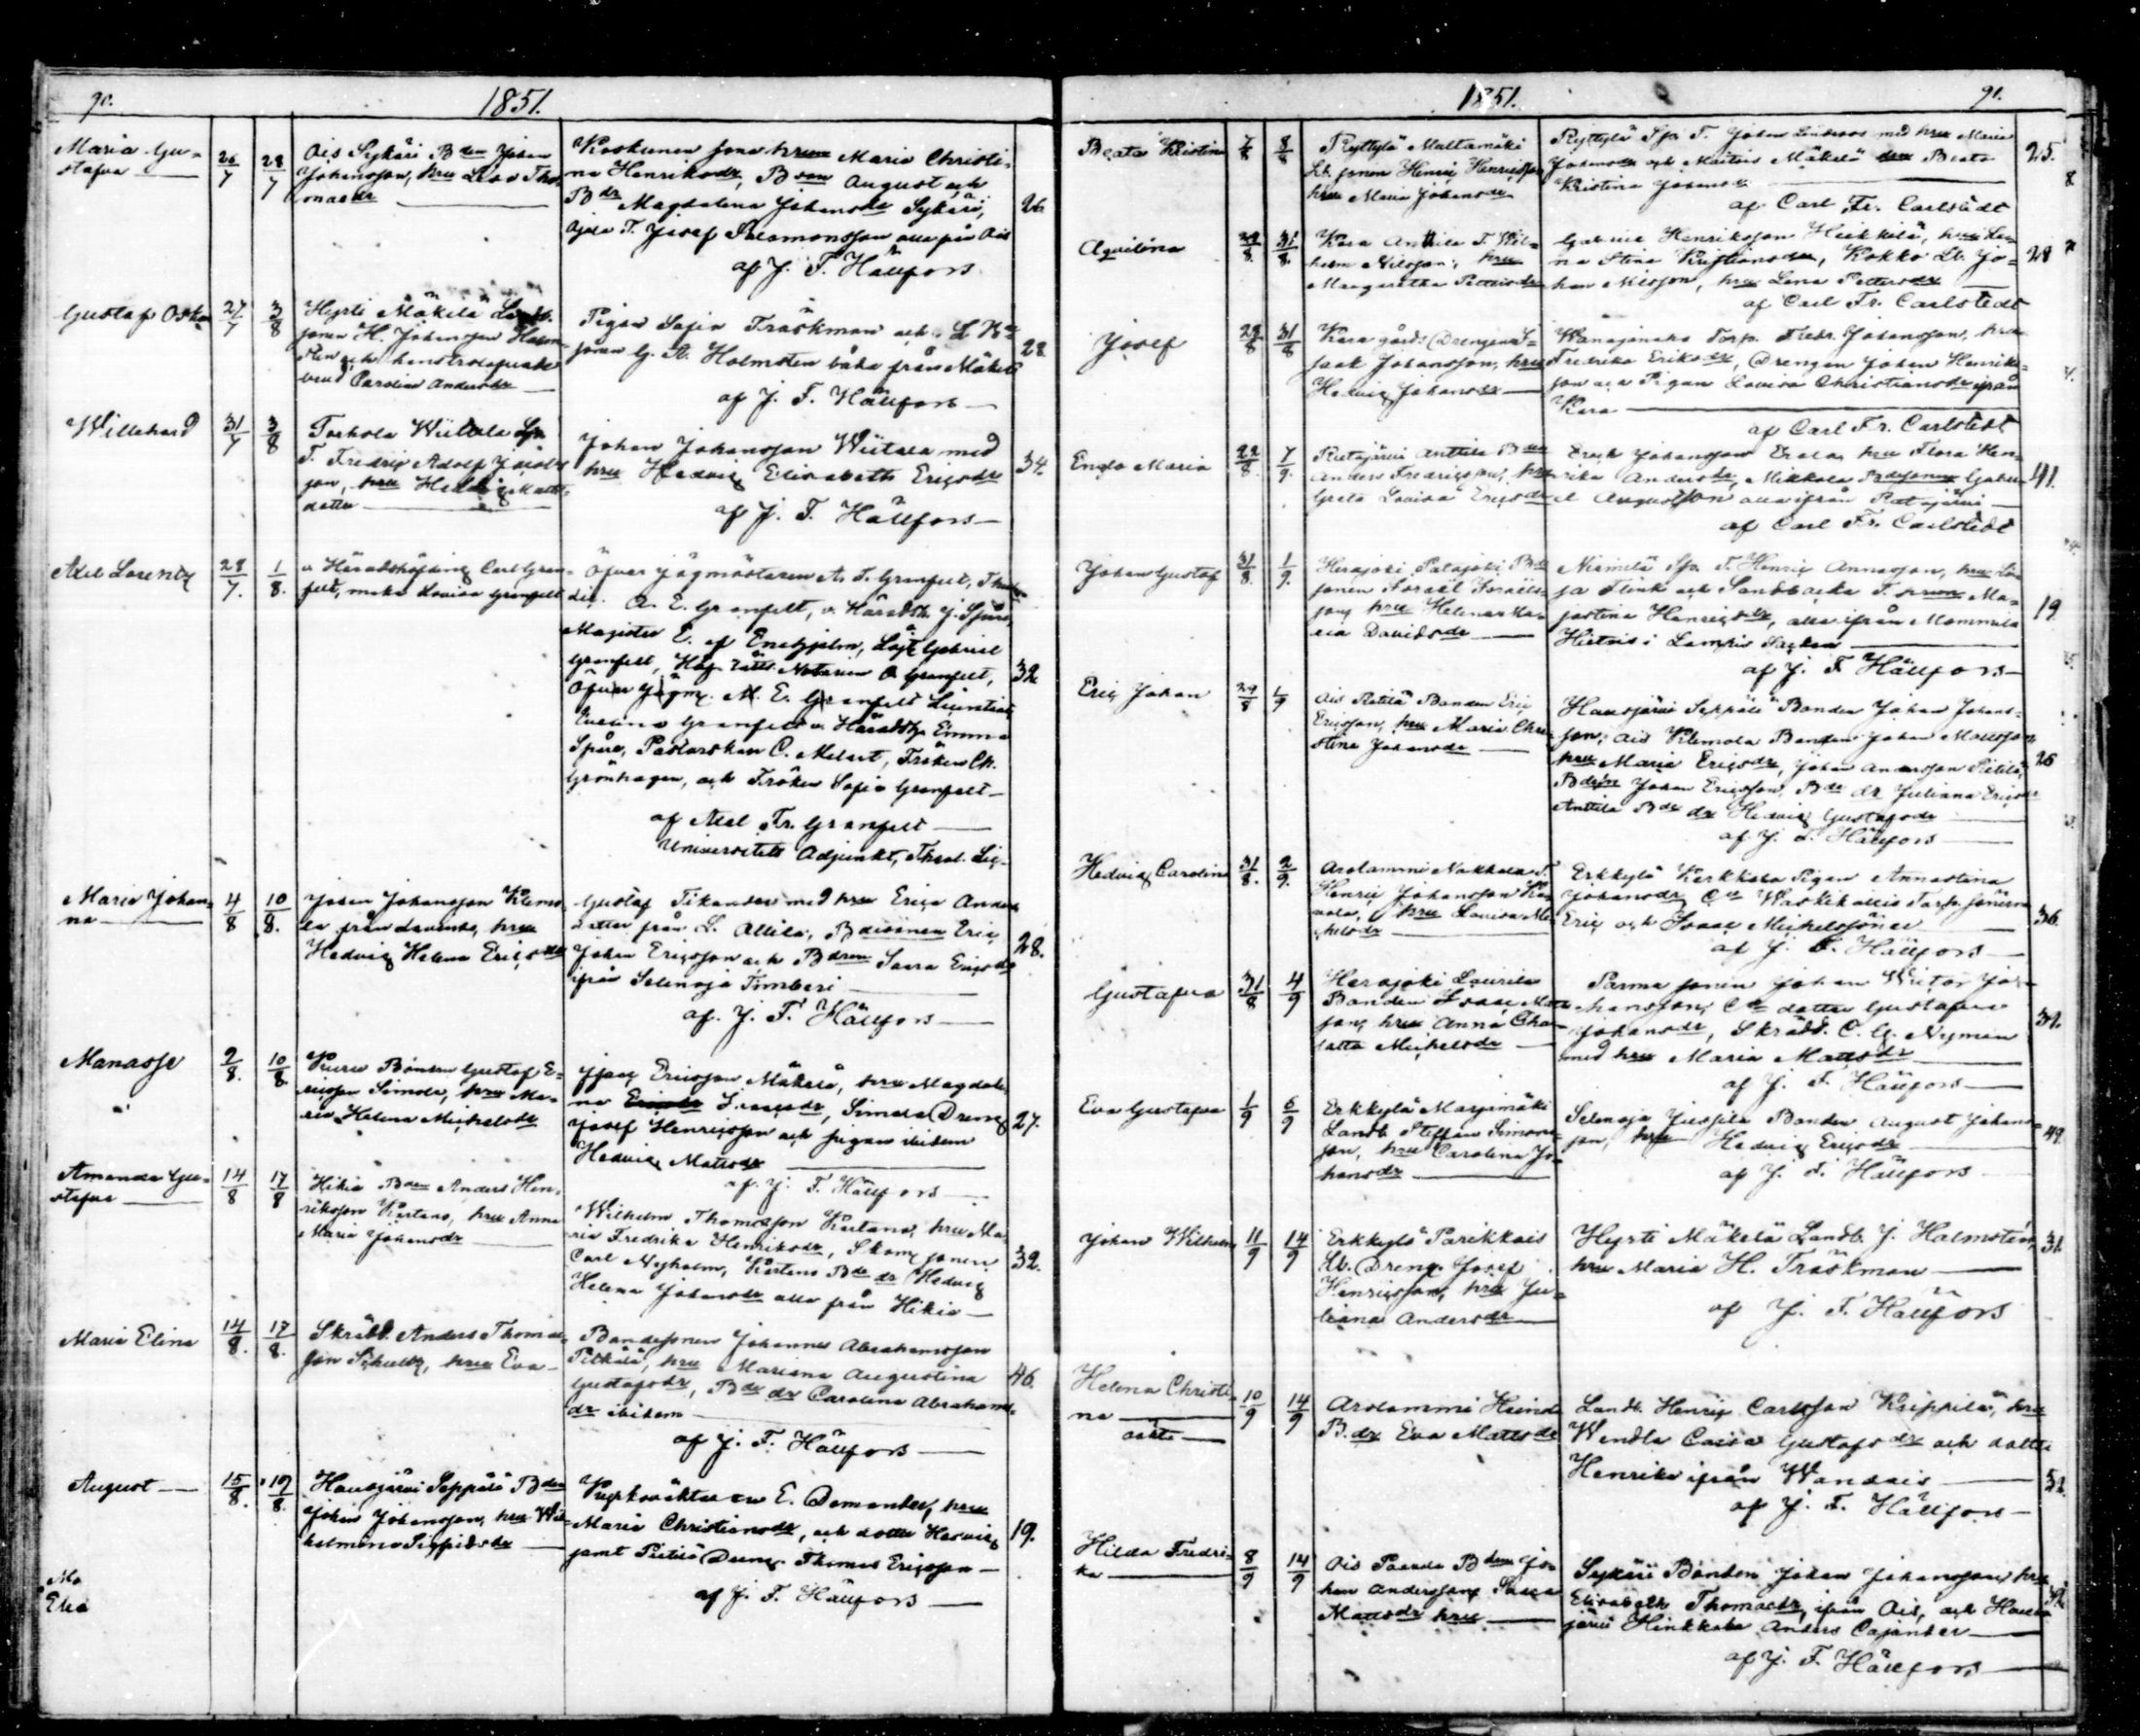 90.
1851.
Maria Gu-
stafva
26/7
28/7
Ois Sykäri Bden Johan
Johansson, hru Lisa Tho-
masdr
Koskunen Jona hrum Maria Christi-
na Henriksdr, Bson August och
Bdr Magdalena Johansdr Sykäri,
Ojala T. Josef Salomonsson alla från Ois
af J. F. Hällfors
26.
Gustaf Oskar
27/7
3/8
Hyrti Mäkilä
sonen H. Johansson Holm-
sten och
Carolina Andersdr
Pigan Sofia Träskman och
sonen G. A. Holmsten båda från Mäkilä
af J. F. Hällfors
28
Willehard
31/7
3/8
Torhola Wiitala
T. Fredrig Adolf Jacobs-
son, hru Hedvig Matts-
dotter
Johan Johansson Wiitala med
hru Hedvig Elisabeth Ericsdr
af J. F. Hällfors
34.
Axel Lorentz
28/7.
1/8.
v Häradshöfding Carl Gran-
felt, maka Lovisa Granfelt
Öfver Jägmästaren A. F. Granfelt,
A. E. Granfelt, v. Häradsh. J. Spåre,
Magister E. af Enehjelm, Löjt Gabriel
Granfelt, Hof rätts Notarien O Granfelt,
Öfver Jägm. M. E. Granfelt
Evelina Granfelt v. Häradshn Emma
Spåre, Pastorskan C. Melart, Fröken Ch.
Grönhagen, och Fröken Sofia Granfelt
af Axel Fr. Granfelt
Universitets Adjunkt, Theol. Lic.
32
Maria Johan-
na
4/8
10/8.
Johan Johansson
från Lavinto, hru
Hedvig Helena Ericsdr
Gustaf Tikander med hru Erica Anders
dotter från L. Attila, Eric
Johan Ericsson och Saara Ericsdr
ifrån Selensoja Timberi
af. J. F. Hällfors
28.
Manasse
2/8.
10/8.
Bonden Gustaf E-
ricsson Simola, hru Ma-
ria Helena Michelsdr
Isac Ericsson Mäkelä, hru Magdale-
na Isacsdr, Simola Dreng
Josef Henricsson och pigan ibidem
Hedvig Mattsdr
af J. F. Hällfors
27.
Amanda Gu-
stafva
14/8
17/8
Hikiä Bden Anders Hen-
riksson Kurtano, hru Anna
Maria Johansdr
Wilhelm Thomasson Kurtano, hru Ma-
ria Fredrika Henriksdr, Skom. sonen
Carl Nyholm, Kurtano Bde dr Hedvig
Helena Johansdr alla från Hikiä
af J. F. Hällfors
32.
Maria Elina
14/8.
17/8.
Skrädd. Anders Thomas-
son Schultz, hru Eva
Gustafsdr
Bondesonen Johannes Abrahamsson
Pitkälä, hru Mariana Augustina
Gustafsdr, Bde dr Carolina Abrahams-
dr ibidem
af J. F. Hällfors
46.
August
15/8.
19/8.
Hausjärvi Seppälä Bden
Johan Johansson, hru Wil-
helmina Sigfridsdr
Kyrkoväktaren E. Demander, hru
Maria Christiansdr, och dotter Hedvig
samt Pietilä Dreng. Thomas Ericsson
af J. F. Hällfors
19.
1851.
91.
Beata Kristina
7/8
8/8
Ryttylä Maltamäki
Lb. sonen Henric Henricsson
hru Maria Johansdr
Ryttylä Sjö T. Johan Lindroos med hru Maria
Johansdr och Mattias Mäkelä hru Beata
Kristina Johansdr
af Carl Fr. Carlstedt
25.
Aqvilina
29/8.
31/8.
Kara Anttila T. Wil-
helm Nilsson, hru
Margaretha Pettersdr
Gabriel Henriksson Heikkilä, hru Le-
na Stina Kristiansdr, Kokko Lb. Jo-
han Nilsson, hru Lena Pettersdr
af Carl Fr. Carlstedt
28
Josef
29/8
31/8
Kara gårds Drengen I-
saak Johansson, hru
Hedvig Johansdr
Wanajanaho Torp. Fredr. Johansson, hru
Fredrika Eriksdr, Drengen Johan Henriks-
son och Pigan Lovisa Christiansdr ifrån
Kara
af Carl Fr. Carlstedt
Enga Maria
22/8.
7/9.
Ridasjärvi Anttila Bden
Anders Fredricsson, hru
Greta Lovisa Ericsdr
Erick Johansson Erola, hru Flora Hen-
rika Andersdr, Mikkola Bdesonen Gabri-
el Augustsson alla ifrån Ridasjärvi
af Carl Fr. Carlstedt
41.
Johan Gustaf
31/8.
1/9.
Herajoki Palajoki
sonen Israel Israels-
son, hru Helena Ma-
ria Davidsdr
Niemelä T. Henric Annasson, hru Lo-
sa Flink och Sandbacka T. hrun Ma-
jastina Henricsdr, alla ifrån Mommila
Hietois i Lampis Socken
af J. F. Hällfors
19
Eric Johan
29/8
1/9
Ois Pietilä Bonden Eric
Ericsson, hru Maria Chri-
stina Johansdr
Hausjärvi Seppälä Bonden Johan Johans-
son; Ois Klemola Bonden Johan Mattsson
hru Maria Ericsdr, Johan Andersson Pietilä,
Bdeson Johan Ericsson, Bde dr Juliana Ericsdr
Anttila Bde dr Hedvig Gustafsdr
af J. F. Hällfors
26
Hedvig Carolina
31/8.
2/9.
Arolammi Nokkala T.
Henric Johansson
hru Lovisa Mi-
chelsdr
Erkkylä Kerkkola Pigan Annastina
Johansdr Waskikallio Torp. sönerna
Eric och Isaac Michelssöner
af J. F. Hällfors
36.
Gustafva
31/8
4/9
Herajoki Laurila
Bonden Isaac Matts-
son, hru Anna Char-
lotta Michelsdr
Parma sonen Johan Wictor Jo-
hansson, dotter Gustafva
Johansdr, Skrädd. C. G. Nyman
med hru Maria Mattsdr
af J. F. Hällfors
31.
Eva Gustafva
1/9
6/9
Erkkylä Marjamäki
Landb. Steffan Simons-
son, hru Carolina Jo-
hansdr
Selensoja Jussila Bonden August Johans-
son, hru Hedvig Ericsdr
af J. F. Hällfors
49.
Johan Wilhelm
11/9
14/9
Erkkylä Parikkais
Lb. Dreng. Josef
Henricsson, hru Ju-
liana Andersdr
Hyrti Mäkelä Landb. J. Holmsten,
hru Maria H. Träskman
af J. F. Hällfors
31.
Helena Christi-
na
oäkta
10/9
14/9
Arolammi Heinola
B. dr Eva Mattsdr
Landb. Henric Carlsson Knippilä, hru
Wendla Caisa Gustafsdr och dotter
Henrika ifrån Wantais
af J. F. Hällfors
32.
Hilda Fredri-
ka
8/9
14/9
Ois Paavola Bden Jo-
han Andersson, Saara
Mattsdr hru
Sykäri Bonden Johan Johansson, hru
Elisabeth Thomasdr, ifrån Ois, och Haus-
järvi Hinkkala Anders Cajander
af J. F. Hällfors